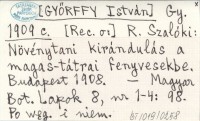 [GYÖRFFY István] Gy.
1909 c. [Rec. o:] R. Szalóki:
Növénytani kirándulás a
magas-tátrai fenyvesekbe.
Budapest 1908. — Magyar
Bot. Lapok 8, nr 1-4: 98.
Po węg. i niem.